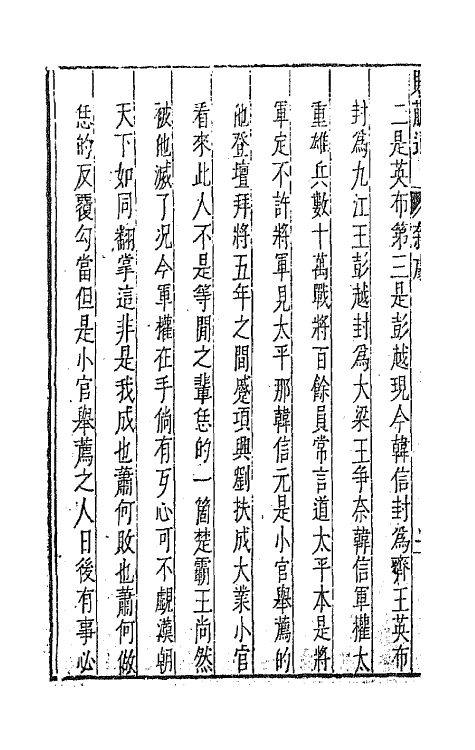 二是英布第三是彭越現今韓信封為齊王英布
封為九江王彭越封為大梁王爭奈韓信軍權太
重雄兵數十萬戰將百餘員常言道太平本是將
軍定不許將軍見太平那韓信元是小官舉薦的
他登壇拜將五年之間蹙項興劉扶成大業小官
看來此人不是等閒之輩恁的一箇楚霸王尚然
被他滅了況今軍權在手倘有歹心可不覷漢朝
天下如同翻掌這非是我成也蕭何敗也蕭何做
恁的反覆勾當但是小官舉薦之人日後有事必